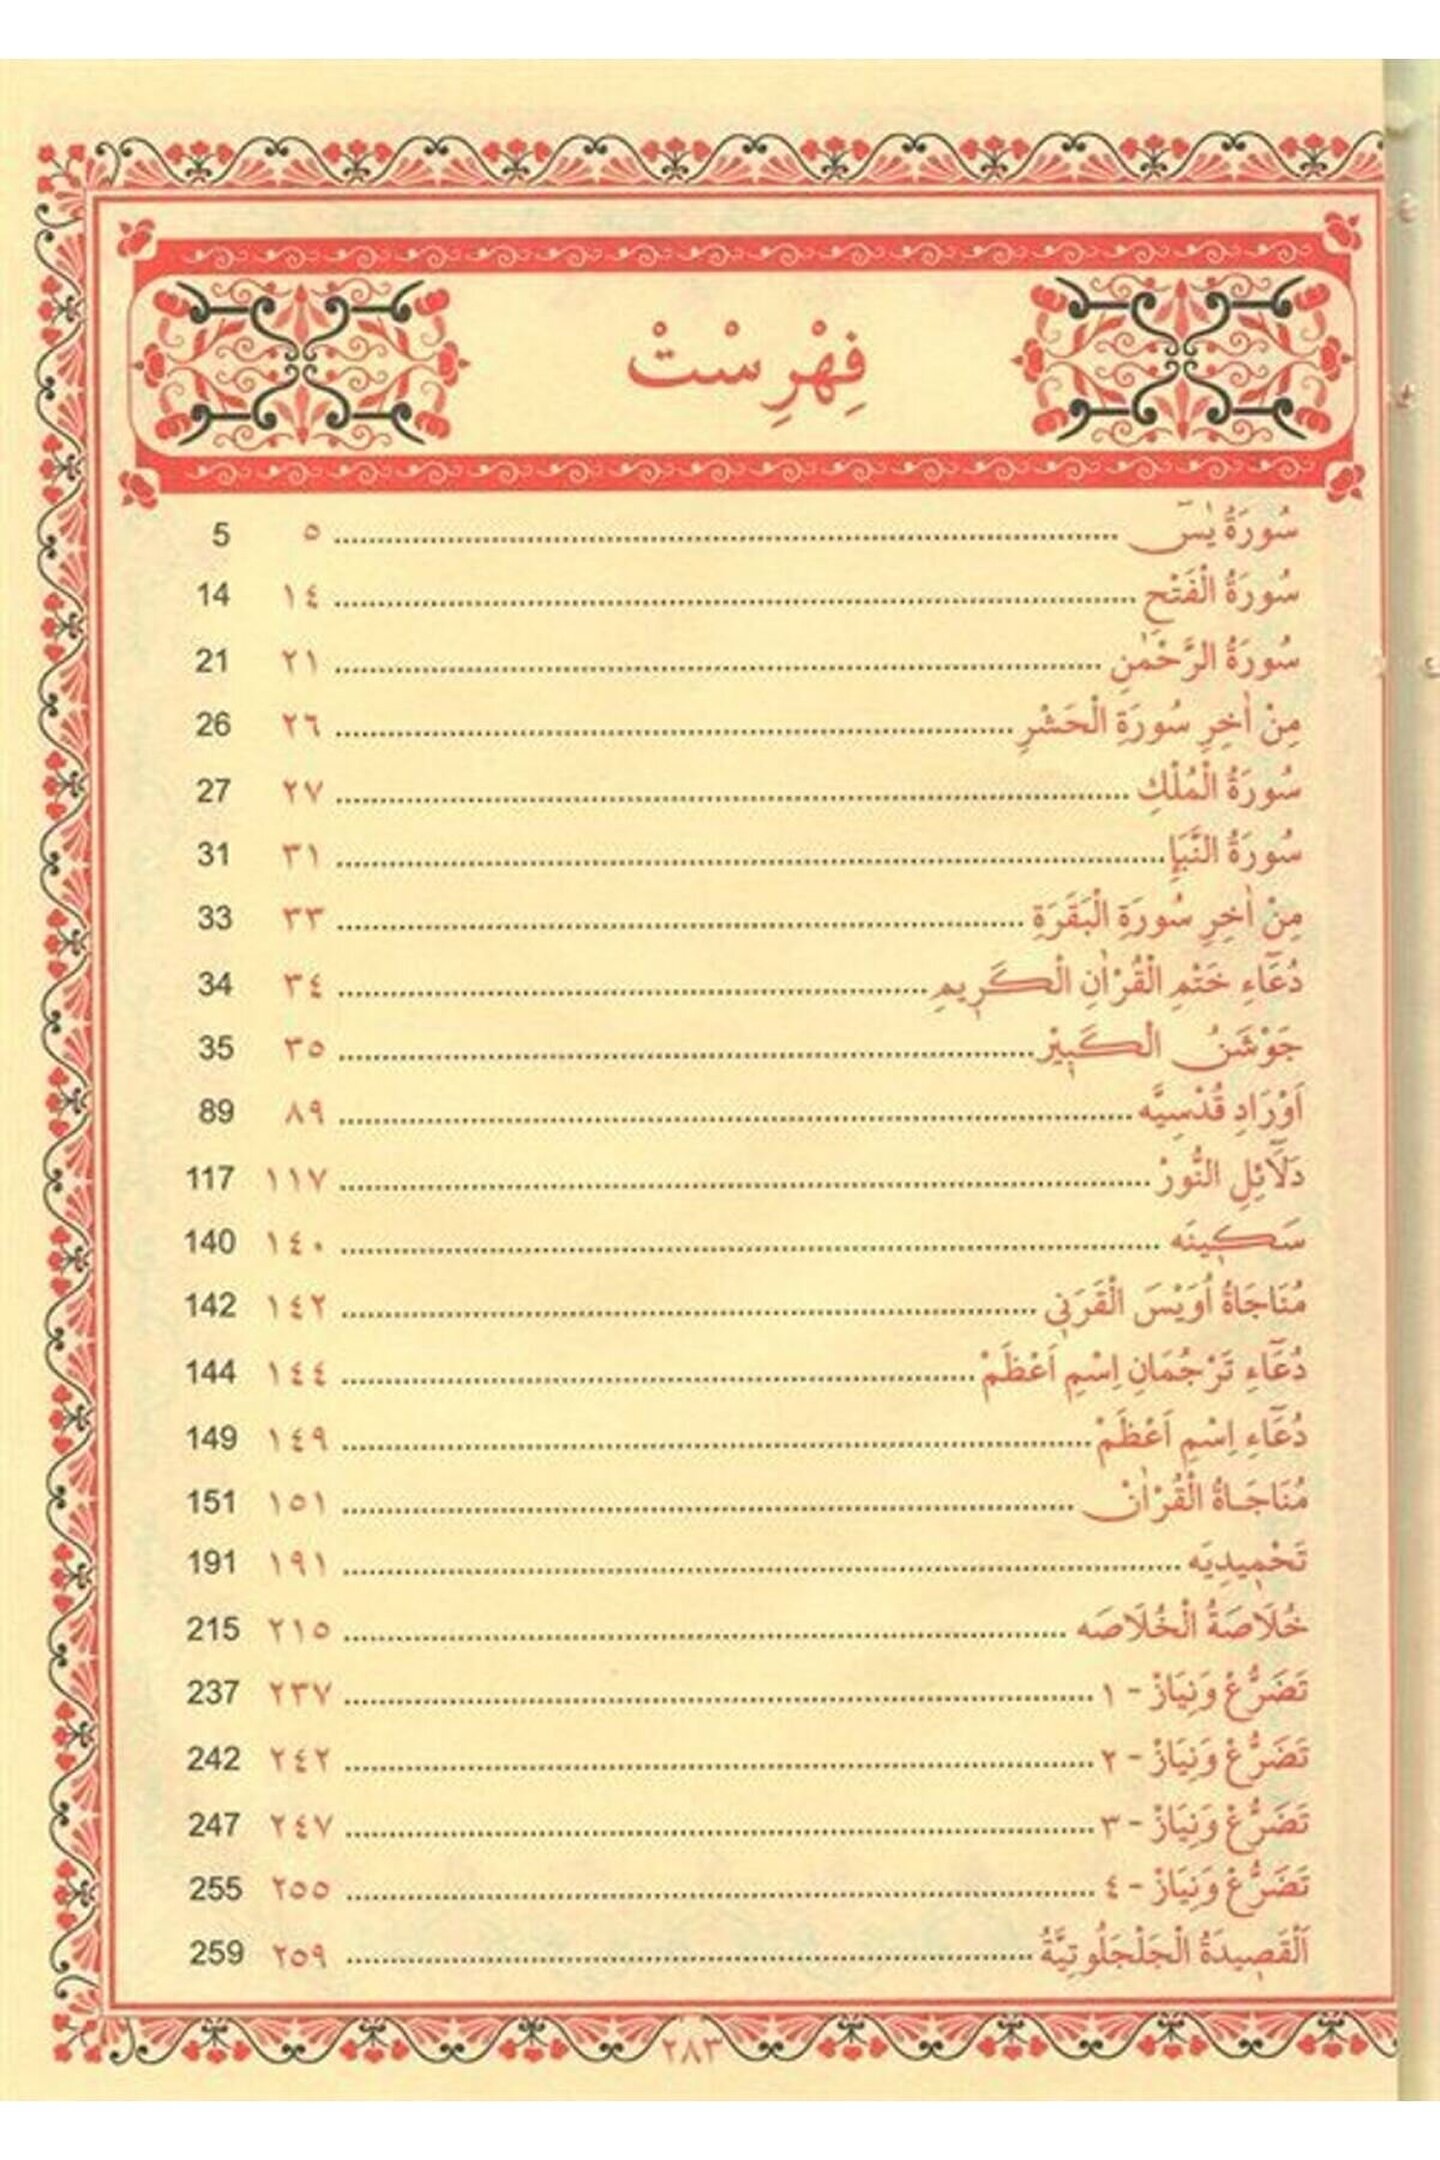 فِهْرِسْتْ
سُورَةُ يٰسٓ ........ ٥ 5
سُورَةُ الْفَتْحِ ........ ١٤ 14
سُورَةُ الرَّحْمٰنِ ........ ٢١ 21
مِنْ اٰخِرِ سُورَةِ الْحَشْرِ ........ ٢٦ 26
سُورَةُ الْمُلْكِ ........ ٢٧ 27
سُورَةُ النَّبَإِ ........ ٣١ 31
مِنْ اٰخِرِ سُورَةِ الْبَقَرَةِ ........ ٣٣ 33
دُعَٓاءِ خَتْمِ الْقُرْاٰنِ الْكَرِيمِ ........ ٣٤ 34
جَوْشَنُ الْكَبِيْرْ ........ ٣٥ 35
اَوْرَادِ قُدْسِيَّه ........ ٨٩ 89
دَلَٓائِلِ النُّورْ ........ ١١٧ 117
سَكِينَه ........ ١٤٠ 140
مُنَاجَاةُ اُوَيْسَ الْقَرَنِي ........ ١٤٢ 142
دُعَٓاءِ تَرْجُمَانِ اِسْمِ اَعْظَمْ ........ ١٤٤ 144
دُعَٓاءِ اِسْمِ اَعْظَمْ ........ ١٤٩ 149
مُنَاجَاةُ الْقُرْاٰنْ ........ ١٥١ 151
تَحْمِيدِيَه ........ ١٩١ 191
خُلَاصَةُ الْخُلَاصَه ........ ٢١٥ 215
تَضَرُّعْ وَنِيَازْ - ١ ........ ٢٣٧ 237
تَضَرُّعْ وَنِيَازْ - ٢ ........ ٢٤٢ 242
تَضَرُّعْ وَنِيَازْ - ٣ ........ ٢٤٧ 247
تَضَرُّعْ وَنِيَازْ - ٤ ........ ٢٥٥ 255
اَلْقَصِيدَةُ الْجَلْجَلُوتِيَّةُ ........ ٢٥٩ 259
٢٨٣